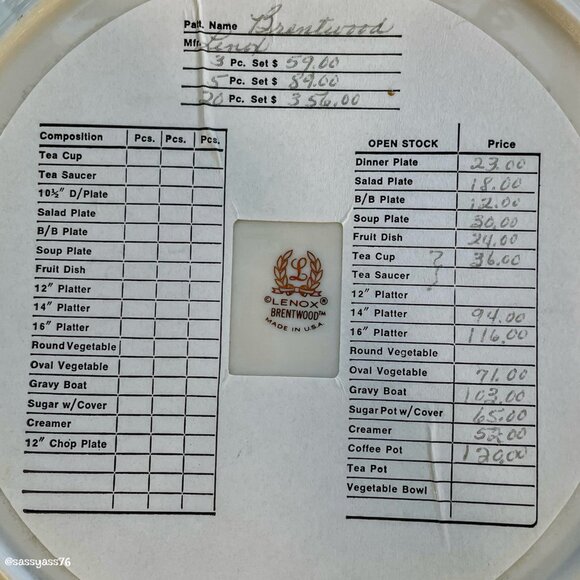 Patt. Name Brentwood
Mfr. Lenox
3 Pc. Set $ 59.00
5 Pc. Set $ 89.00
20 Pc. Set $ 356.00
Composition Pcs. Pcs. Pcs.
Tea Cup
Tea Saucer
10½" D/Plate
Salad Plate
B/B Plate
Soup Plate
Fruit Dish
12" Platter
14" Platter
16" Platter
Round Vegetable
Oval Vegetable
Gravy Boat
Sugar w/Cover
Creamer
12" Chop Plate
L
©LENOX®
BRENTWOOD™
MADE IN U.S.A.
OPEN STOCK Price
Dinner Plate 23.00
Salad Plate 18.00
B/B Plate 12.00
Soup Plate 30.00
Fruit Dish 24.00
Tea Cup } 36.00
Tea Saucer
12" Platter
14" Platter 94.00
16" Platter 116.00
Round Vegetable
Oval Vegetable 71.00
Gravy Boat 103.00
Sugar Pot w/Cover 65.00
Creamer 52.00
Coffee Pot 120.00
Tea Pot
Vegetable Bowl
@sassyass76